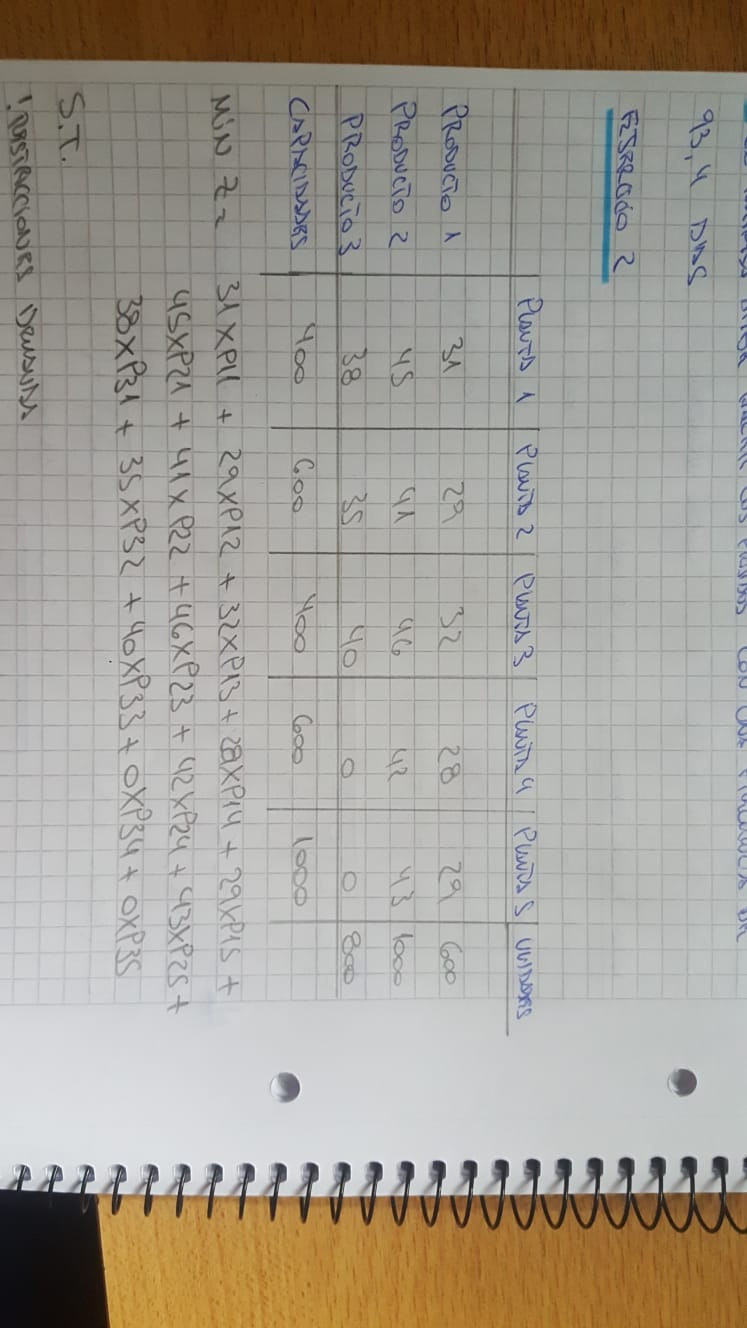 93,4 DIAS
EJERCICIO 2
Planta 1 Planta 2 Planta 3 Planta 4 Planta 5 UNIDADES
PRODUCTO 1 31 29 32 28 29 600
PRODUCTO 2 45 41 46 42 43 1000
PRODUCTO 3 38 35 40 0 0 800
CAPACIDADES 400 600 400 600 1000
MIN Z = 31XP11 + 29XP12 + 32XP13 + 28XP14 + 29XP15 +
45XP21 + 41XP22 + 46XP23 + 42XP24 + 43XP25 +
38XP31 + 35XP32 + 40XP33 + 0XP34 + 0XP35
S.T.